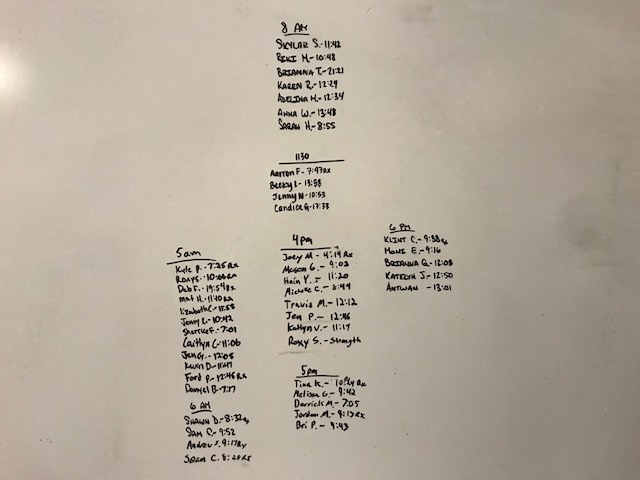 8 AM
SKYLAR S.-11:42
BIKI M.-10:48
BRIANNA T.-21:21
KAREN R.-12:29
ADELINA M.-12:34
ANNA W.-13:48
SARAH H.-8:55
1130
Aarron F-7:47RX
Becky L-13:58
Jenny N-10:53
Candice G.-17:33
4pm
Joey M-4:14 Rx
Mason G.-9:03
Hain Y.-11:20
Michelle C.-8:44
Travis M.-12:12
Jen P.-12:46
Katlyn V.-11:17
Roxy S.-Strength
5pm
Tina K.-10:24 Rx
Melissa G.-9:42
Derrick M.-7:05
Jordan M.-9:13 Rx
Bri P.-9:43
6 PM
KLINT C.-9:38Rx
MONI E.-9:16
BRIANNA G.-12:08
KATELYN J.-12:50
ANTWAN -13:01
5am
Kyle P.-7:25 Rx
10:00 Rx
Deb F.-19:54 Rx
Matt H.-11:40 Rx
Elizabeth C.-11:53
Jenny R.-10:42
Sherrice F.-7:01
Caitlyn C-11:06
Jen G.-12:05
Kevin D.-11:47
Ford P.-12:46 Rx
Daniel B.-7:17
6 AM
SHAWN D.-8:32Rx
SAM C.-9:52
Andrew S. 9:17Rx
Sean C. 8:28 Rx